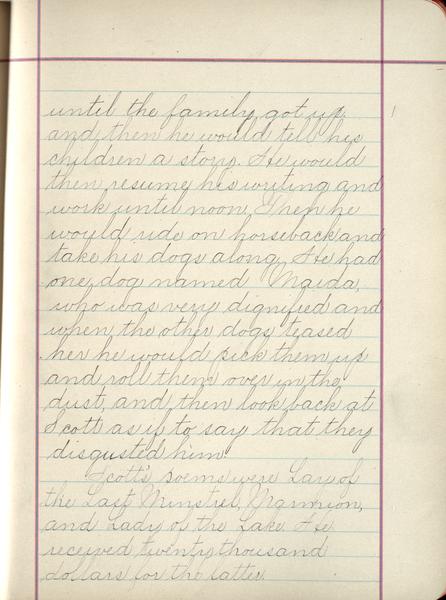 until the family got up
and then he would tell his
children a story. He would
then resume his writing and
work until noon. Then he
would ride on horseback and
take his dogs along. He had
one dog named Maida,
who was very dignified and
when the other dogs teased
her he would pick them up
and roll them over in the
dust, and then look back at
Scott as if to say that they
disgusted him.
Scott's poems were Lay of
the Last Minstrel, Marmion,
and Lady of the Lake. He
received twenty thousand
dollars for the latter.